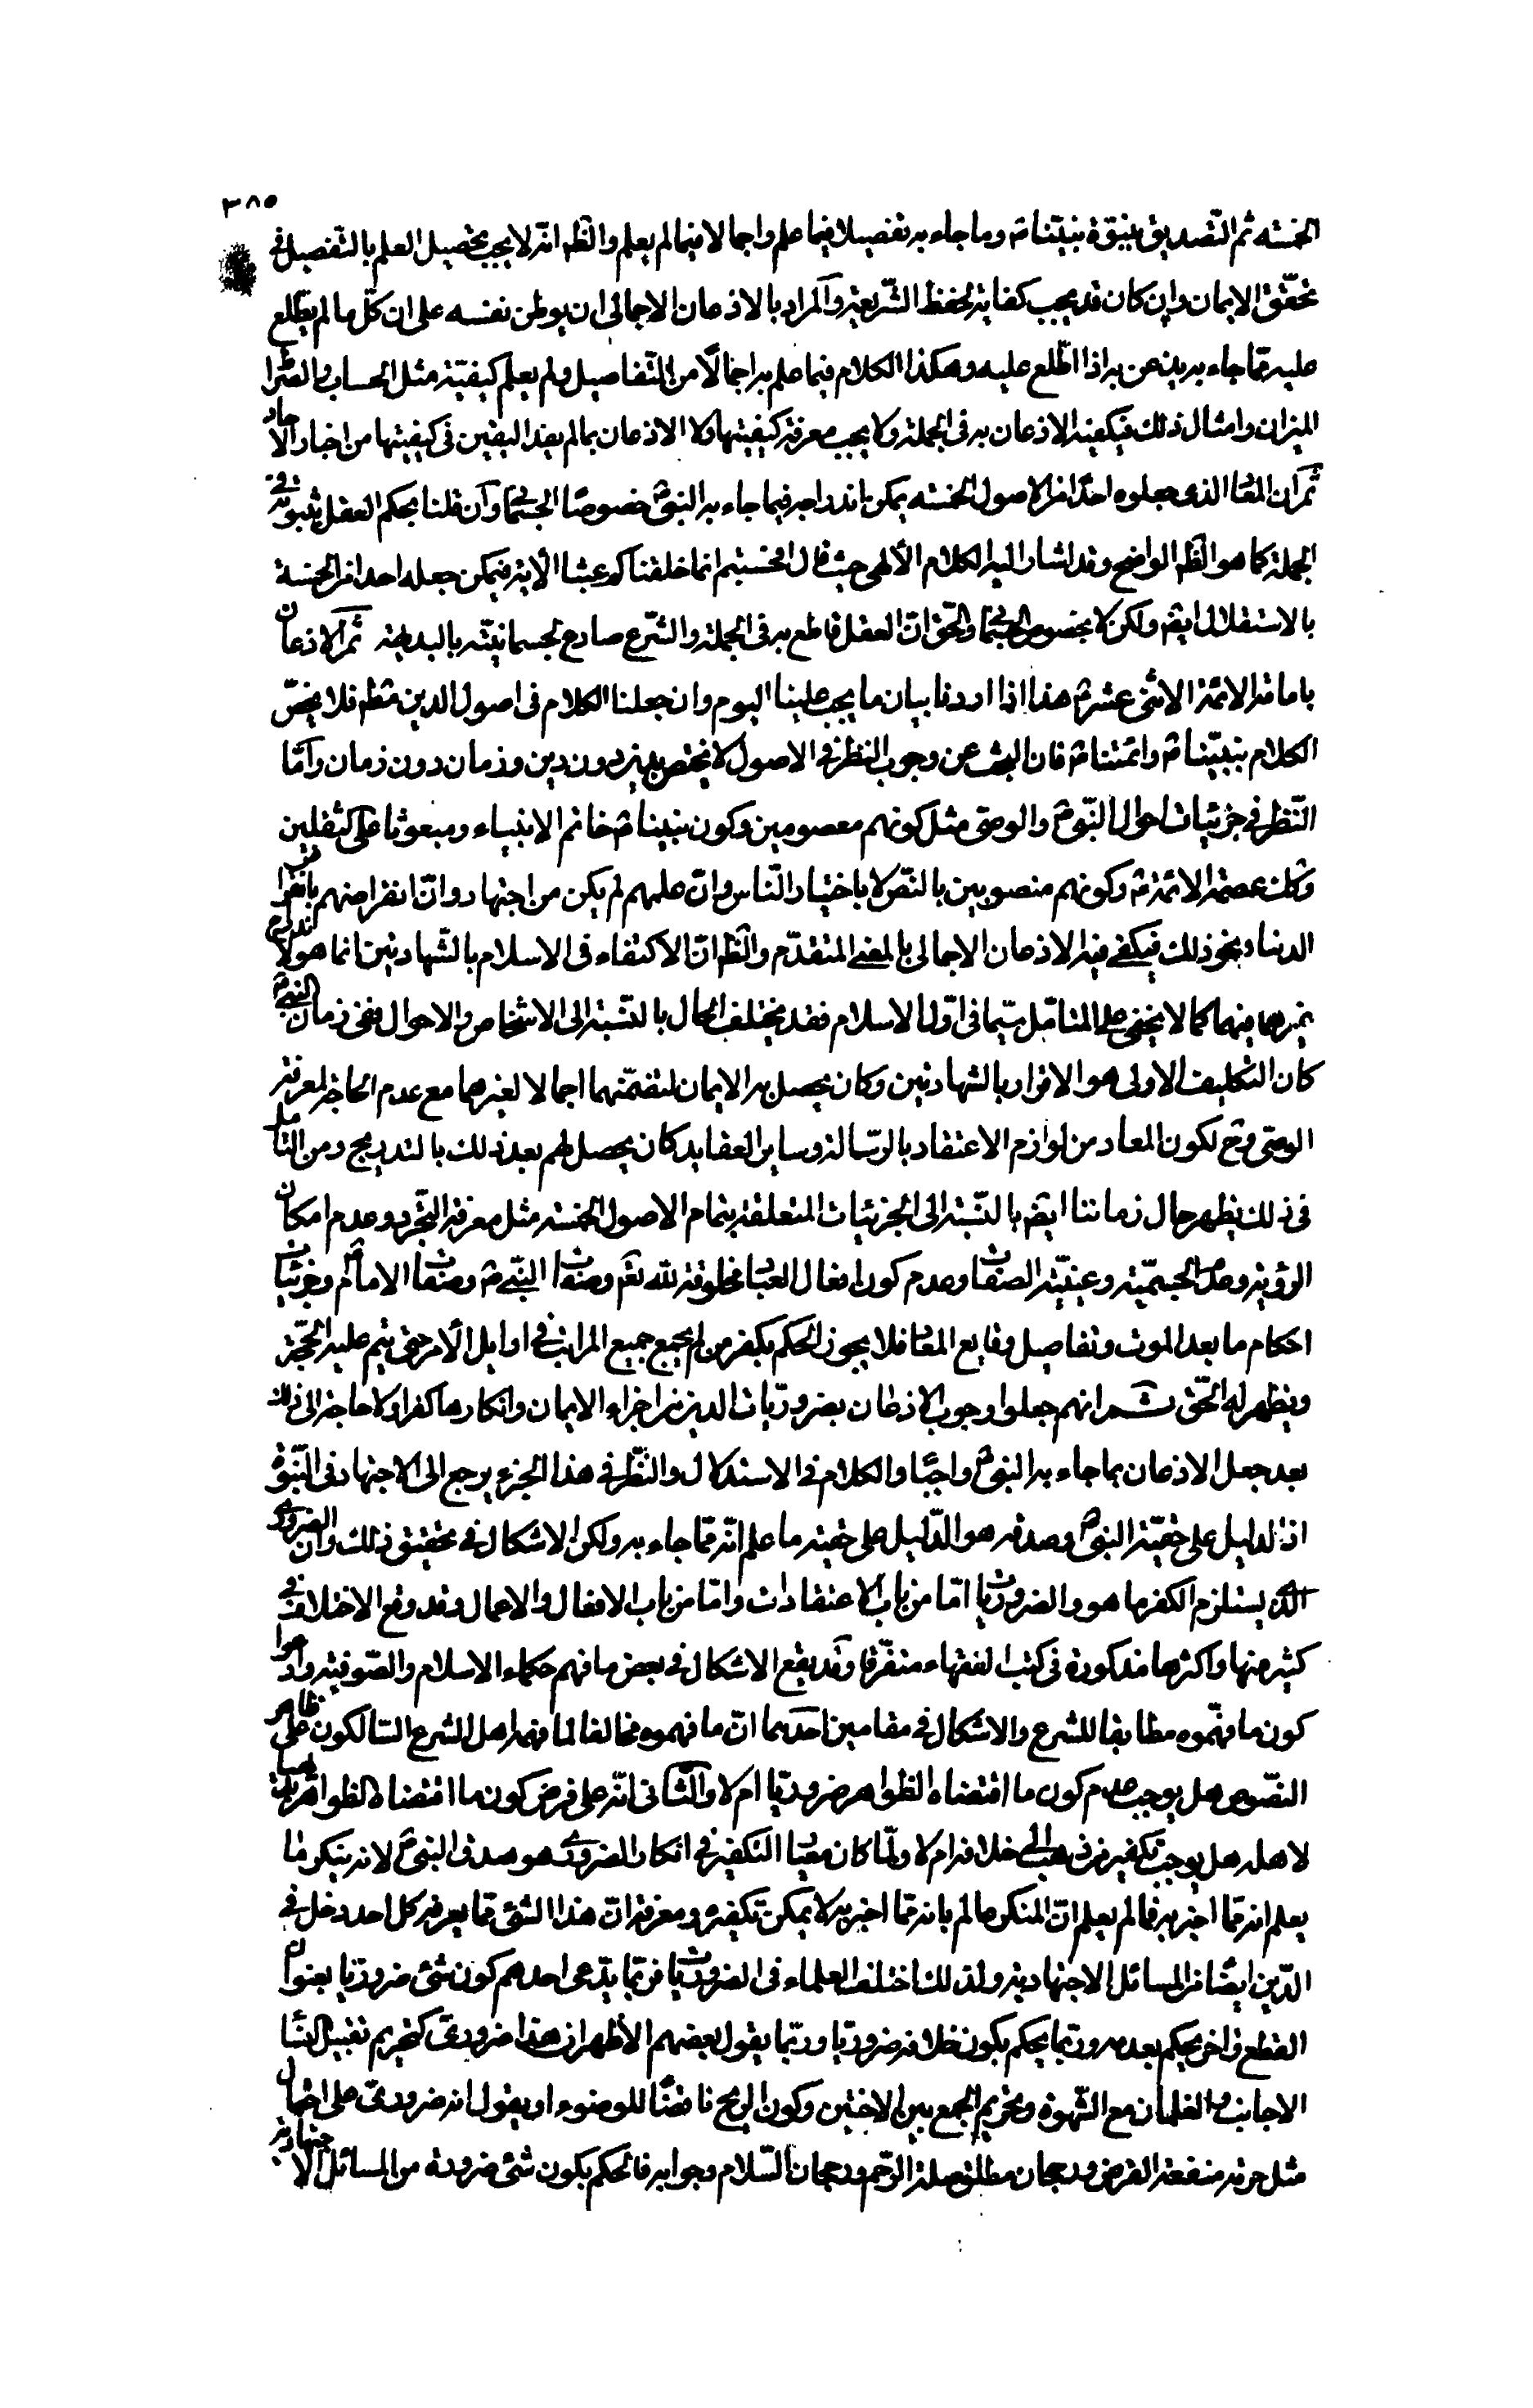 ٣٨٥
الخمسة ثم التّصديق بنبوّة نبيّنا ص وما جاء به تفصيلا فيما علم واجمالا فيما لم يعلم والظ انّه لا يجب تحصيل العلم بالتّفصيل في
تحقّق الايمان وان كان قد يجب كفاية لحفظ الشّريعة والمراد بالاذعان الاجمالى ان يوطن نفسه على ان كلّ ما لم يطّلع
عليه ممّا جاء به يذعن به اذا اطّلع عليه وهكذا الكلام فيما علم به اجمالًا من التّفاصيل ولم يعلم كيفيّته مثل الحساب والصّراط
الميزان وامثال ذلك فيكفيه الاذعان به في الجملة ولا يجب معرفة كيفيتها ولا الاذعان بما لم يفد اليقين في كيفيتها من اخبار الاحاد
ثم ان المعاد الذي جعلوه احدًا من الاصول الخمسه يمكن اندراجه فيما جاء به النبي ص خصوصًا الجسمانى وان قلنا بحكم العقل بثبوته في
الجملة كما هو الظ الواضح وقد اشار اليه الكلام الألهى حيث قال افحسبتم انما خلقناكم عبثا الأية فيمكن جعله احدا من الخمسة
بالاستقلال ايضا ولكن لا بخصوص الجسمانى والحق انّ العقل قاطع به في الجملة والشّرع صادع بجسمانيّته بالبديهة ثم الاذعان
بامامة الائمّة الاثنى عشر ع هذا اذا اردنا بيان ما يجب علينا اليوم وان جعلنا الكلام في اصول الدين مطم فلا يخصّ
الكلام بنبيّنا ص وائمّتنا ع فان البحث عن وجوب النظر في الاصول لا يختص بدين دون دين وزمان دون زمان وامّا
النّظر في جزئيات احوال النّبي ص والوصى مثل كونهم معصومين وكون نبينا ص خاتم الانبياء ومبعوثا على الثقلين
وكك عصمة الائمة ع وكونهم منصوبين بالنّص لا باختيار النّاس وانّ علمهم لم يكن من اجتهاد وانّ انقراضهم بانقراض
الدنيا ونحو ذلك فيكفى فيه الاذعان الاجمالى بالمعنى المتقدّم والظ انّ الاكتفاء في الاسلام بالشّهادتين انما هو لاندراج
غيرهما فيهما كما لا يخفى على المتامّل سيّما في اوّل الاسلام فقد يختلف الحال بالنّسبة الى الاشخاص والاحوال ففى زمان النبي ص
كان التكليف الاولى هو الاقرار بالشهادتين وكان يحصل به الايمان لتضمّنهما اجمالا لغيرهما مع عدم الحاجة لمعرفة
الوصى وح لكون المعاد من لوازم الاعتقاد بالرّسالة وساير العقايد كان يحصل لهم بعد ذلك بالتدريج ومن التامل
في ذلك يظهر حال زماننا ايضا بالنّسبة الى الجزئيات المتعلقة بتمام الاصول الخمسة مثل معرفة التّجرد وعدم امكان
الرؤية وعدم الجسميّة وعينيّة الصفات وعدم كون افعال العباد مخلوقة لله تعم وصفات النّبي ص وصفات الامام ع وجزئيات
احكام ما بعد الموت وتفاصيل وقايع المعاد فلا يجوز الحكم بكفر من لم يجمع جميع المراتب في اوايل الأمر حتى يتم عليه الحجّة
ويظهر له الحقّ ثم انهم جعلوا وجوب الاذعان بضروريّات الدين من اجزاء الايمان وانكارها كفرا ولا حاجة الى ذلك
بعد جعل الاذعان بما جاء به النبي ص واجبًا والكلام في الاستدلال والنّظر في هذا الجزء يرجع الى الاجتهاد في النّبوّة
اذ الدليل على حقيّة النبي ص وصدقه هو الدّليل على حقية ما علم انّه ممّا جاء به ولكن الاشكال في تحقيق ذلك وان الضرورى
الذى يستلزم الكفر ما هو والضروريات امّا من باب الاعتقادات وامّا من باب الافعال والاعمال وقد وقع الاختلاف في
كثير منها واكثرها مذكورة في كتب الفقهاء متفرّقا وقد يقع الاشكال في بعض ما فهم حكماء الاسلام والصّوفية وادعوا
كون ما فهّموه مطابقا للشرع والاشكال في مقامين احدهما انّ ما فهموه مخالفا لما فهم اهل الشرع السّالكون على ظاهر
النّصوص هل يوجب عدم كون ما اقتضاه الظواهر ضروريّا ام لا والثّانى انّه على فرض كون ما اقتضاه الظواهر بديهيا
لاهله هل يوجب تكفير من ذهب الى خلافه ام لا ولمّا كان معيار التكفير في انكار الضرورى هو صدق النبي ص لانه ينكر ما
يعلم انه ممّا اخبر به فما لم يعلم انّ المنكر عالم بانه ممّا اخبر به لا يمكن تكفيره ومعرفة انّ هذا الشئ ممّا يعرفه كل احد دخل في
الدّين ايضًا من المسائل الاجتهادية ولذلك اختلف العلماء في الضروريات فربّما يدّعى احدهم كون شئ ضروريّا بعنوان
القطع واخر يحكم بعدمه وربّما يحكم بكون خلافه ضروريّا وربّما يقول بعضهم الأظهر ان هذا ضرورىّ كتحريم تقبيل النّساء
الاجانب والغلمان مع الشّهوة وتحريم الجمع بين الاختين وكون الريح ناقضًا للوضوء او يقول انه ضرورىّ على احتمال
مثل حرمة منفعة القرض ورجحان مطلق صلة الرّحم ورجحان السّلام وجوابه فالحكم بكون شئ ضرورة من المسائل الاجتهادية